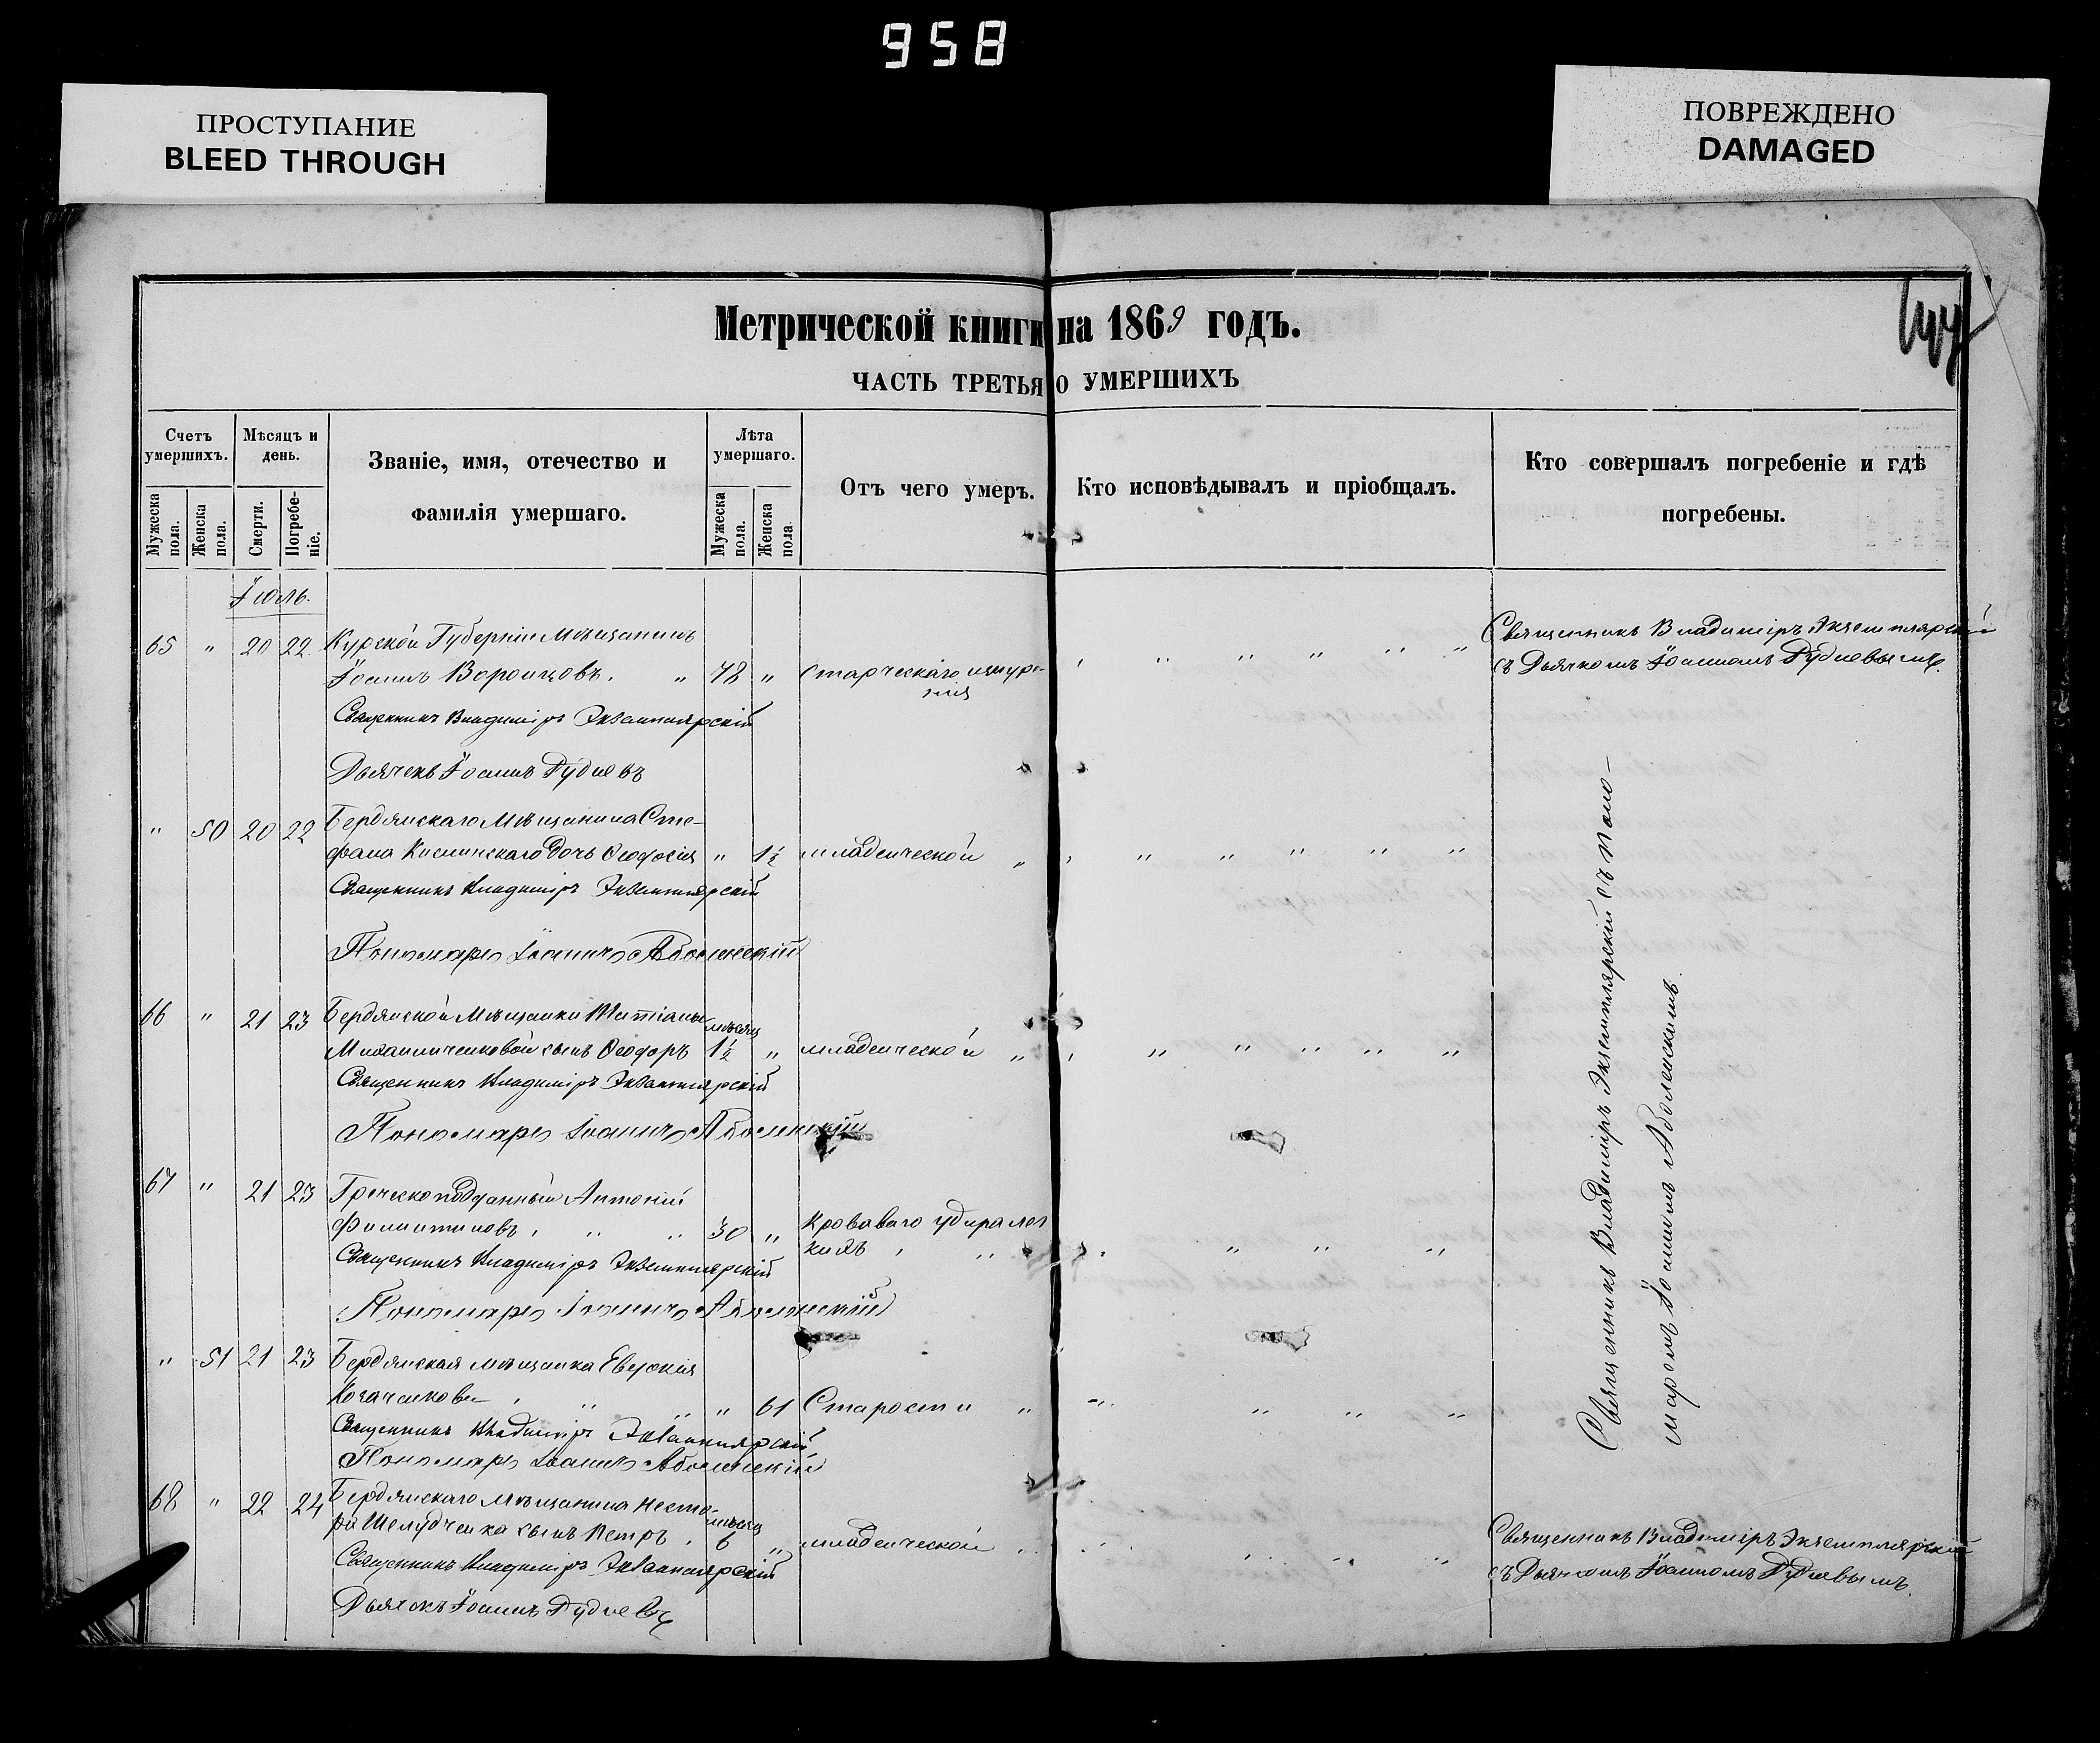 958
ПРОСТУПАНИЕ
BLEED THROUGH
ПОВРЕЖДЕНО
DAMAGED
Метрической книги на 1869 годъ.
ЧАСТЬ ТРЕТЬЯ О УМЕРШИХЪ
Счетъ умершихъ.
Мужеска пола.
Женска пола.
Мѣсяцъ и день.
Смерти.
Погребеніе.
Званіе, имя, отечество и
фамилія умершаго.
Лѣта умершаго.
Мужеска пола.
Женска пола
Отъ чего умеръ.
Кто исповѣдывалъ и пріобщалъ.
Кто совершалъ погребеніе и гдѣ
погребены.
Іюль.
65 " 20 22 Курской Губерніи Мѣщанинъ
Іоаннъ Воронцовъ. " 78 " Старческаго изнуре-
нія
Священникъ Владиміръ Экземплярскій
съ Дьячкомъ Іоанномъ Рудневымъ.
Священникъ Владиміръ Экземплярскій
Дьячекъ Іоаннъ Рудневъ
" 50 20 22 Бердянскаго Мѣщанина Сте-
фана дочь Феодосія " 1½ младенческой "
Священникъ Владиміръ Экземплярскій
Пономарь Іоаннъ Аболенскій
66 " 21 23 Бердянской Мѣщанки Татіаны мѣсяц
Михайличенковой сынъ Феодоръ 1½ " младенческой "
Священникъ Владиміръ Экземплярскій
Пономарь Іоаннъ Аболенскій
67 " 21 23 Греческоподданный Антоній
30 " Кроваваго
Священникъ Владиміръ Экземплярскій
Пономарь Іоаннъ Аболенскій
" 51 21 23 Бердянская мѣщанка Евфокія
" 61 Старости "
Священникъ Владиміръ Экземплярскій
Пономарь Іоаннъ Аболенскій
Священникъ Владиміръ Экземплярскій съ Поно-
маромъ Іоанномъ Аболенскимъ.
68 " 22 24 Бердянскаго мѣщанина Несто-
ра Шелудченка сынъ Петръ, мѣсяц 6 " младенческой
Священникъ Владиміръ Экземплярскій
съ Дьячкомъ Іоанномъ Рудневымъ.
Священникъ Владиміръ Экземплярскій
Дьячекъ Іоаннъ Рудневъ